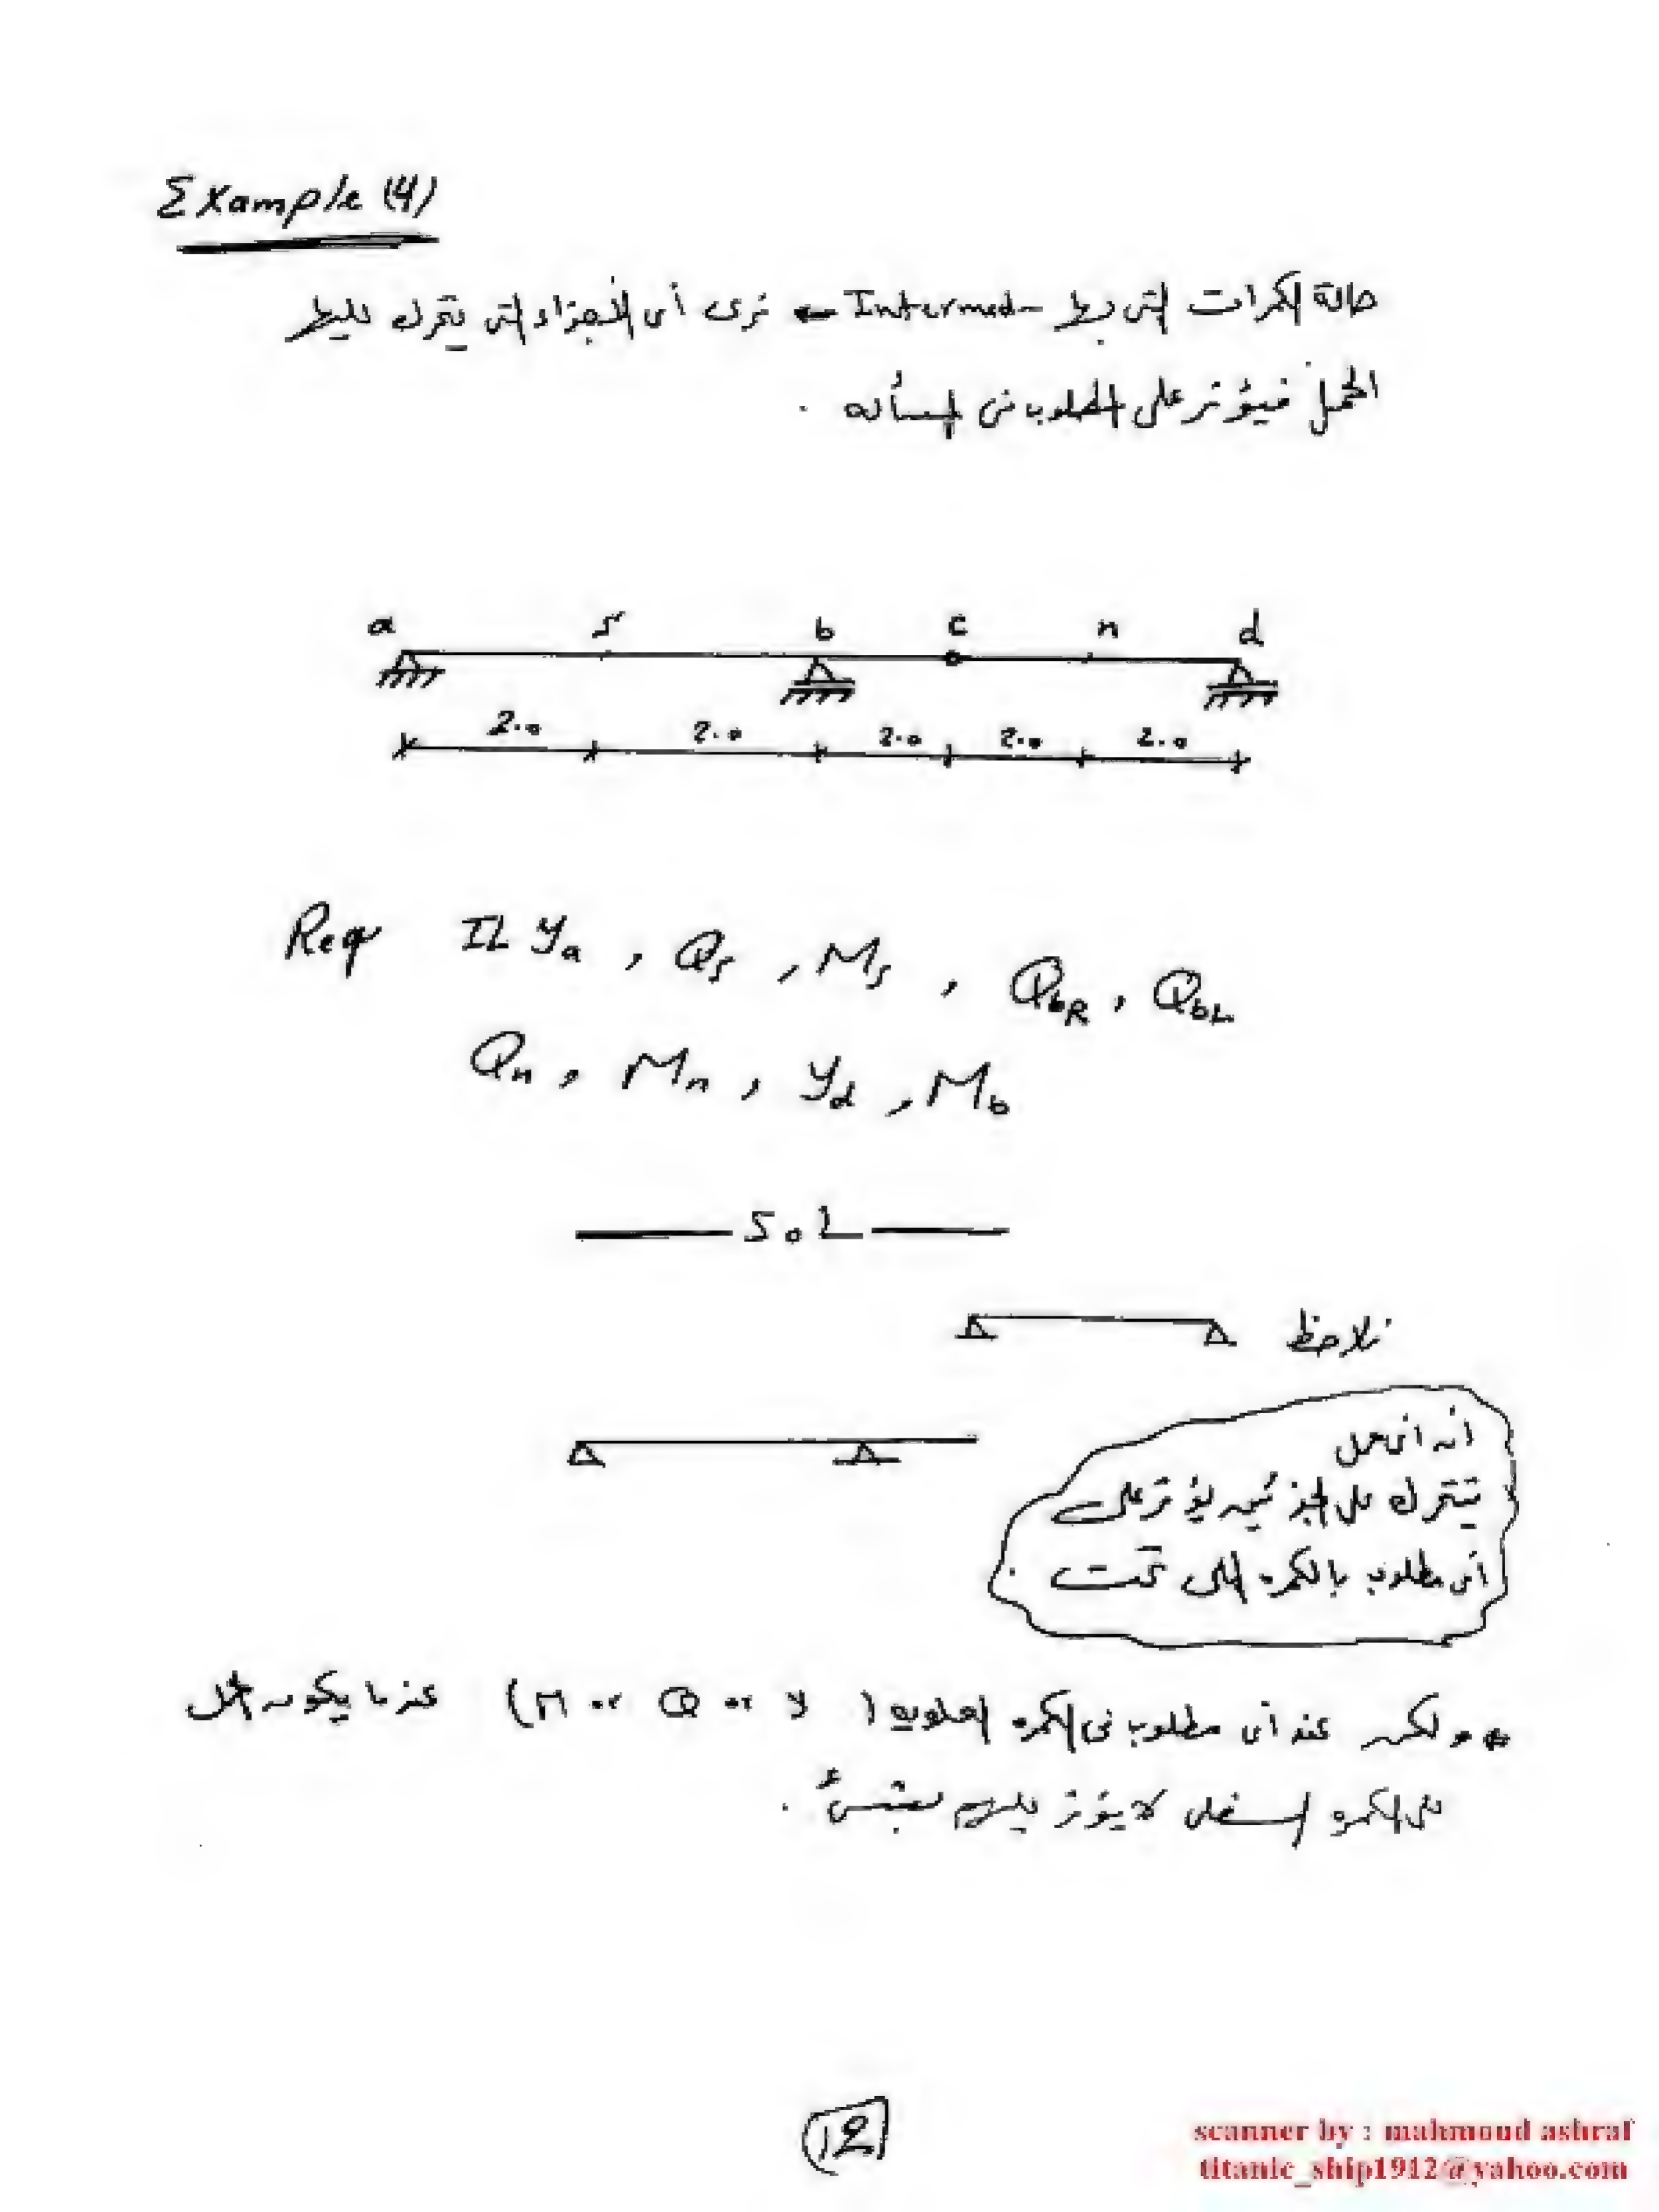 Example (4)
حالة الكمرات التى بها Intermed- ← نرى أى الأجزاء التى يتحرك عليها
الحمل فيؤثر على المطلوب فى المسأله .
a s b c n d
2.0 2.0 2.0 2.0 2.0
Req IL Ya , Qs , Ms , QbR , QbL
Qn , Mn , Yd , Mb
Sol
نلاحظ
أنه أى حمل
يتحرك على الجزئين يؤثر على
أى مطلوب بالكمره اللى تحت .
** ولكن عند أى مطلوب فى الكمره العلويه ( Y or Q or M ) عندما يكون الحمل
على الكمره السفلى لا يؤثر عليهم بشئ .
12
scanner by : mahmoud ashraf
titanic_ship1912@yahoo.com